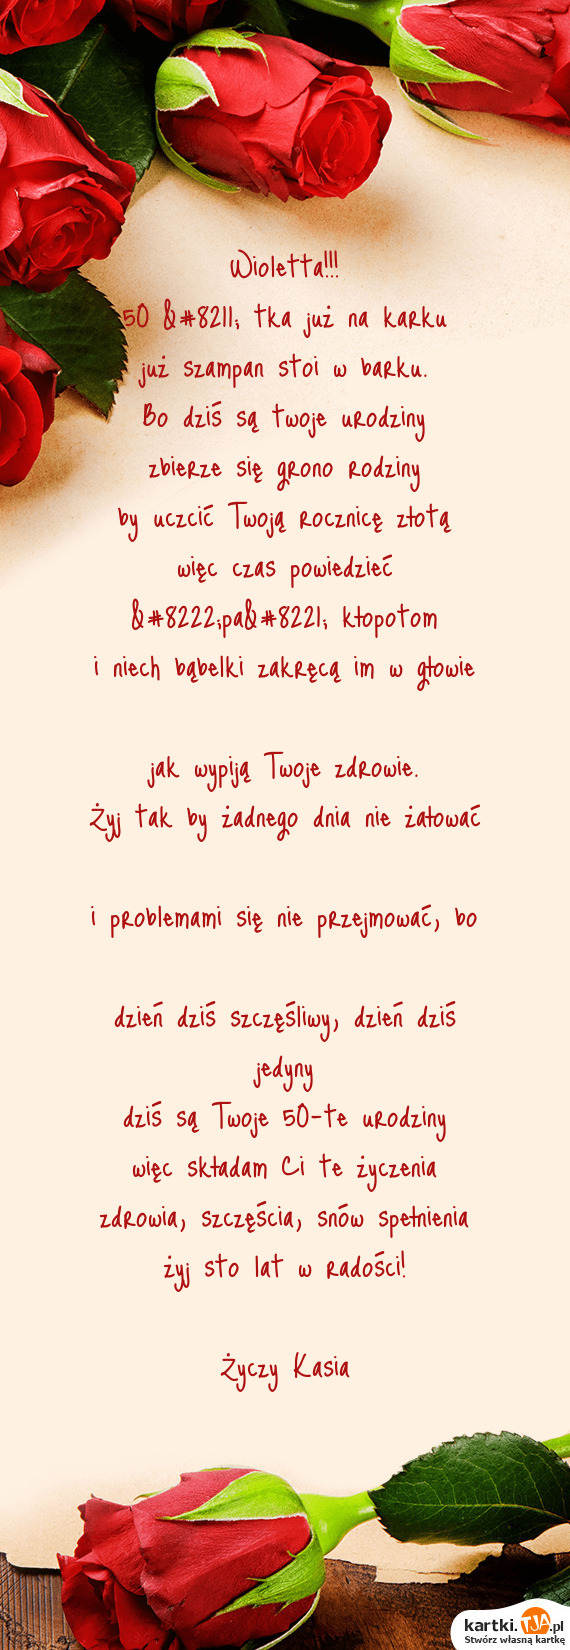 Wioletta!!!
50 &#8211; tka już na karku
już szampan stoi w barku.
Bo dziś są twoje urodziny
zbierze się grono rodziny
by uczcić Twoją rocznicę złotą
więc czas powiedzieć
&#8222;pa&#8221; kłopotom
i niech bąbelki zakręcą im w głowie
jak wypiją Twoje zdrowie.
Żyj tak by żadnego dnia nie żałować
i problemami się nie przejmować, bo
dzień dziś szczęśliwy, dzień dziś
jedyny
dziś są Twoje 50-te urodziny
więc składam Ci te życzenia
zdrowia, szczęścia, snów spełnienia
żyj sto lat w radości!
Życzy Kasia
kartki.TJA.pl
Stwórz własną kartkę